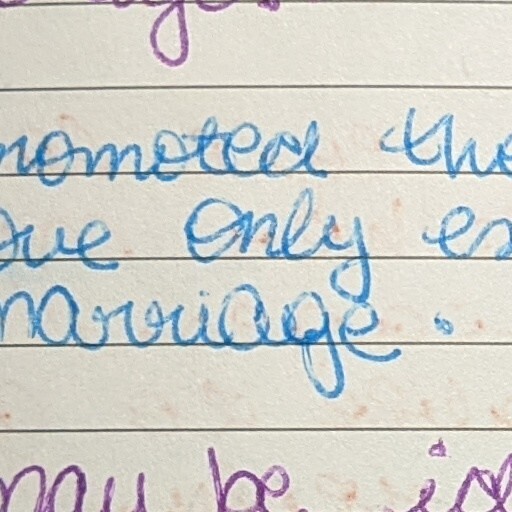 romoted the
ove only ex
marriage.
may be id